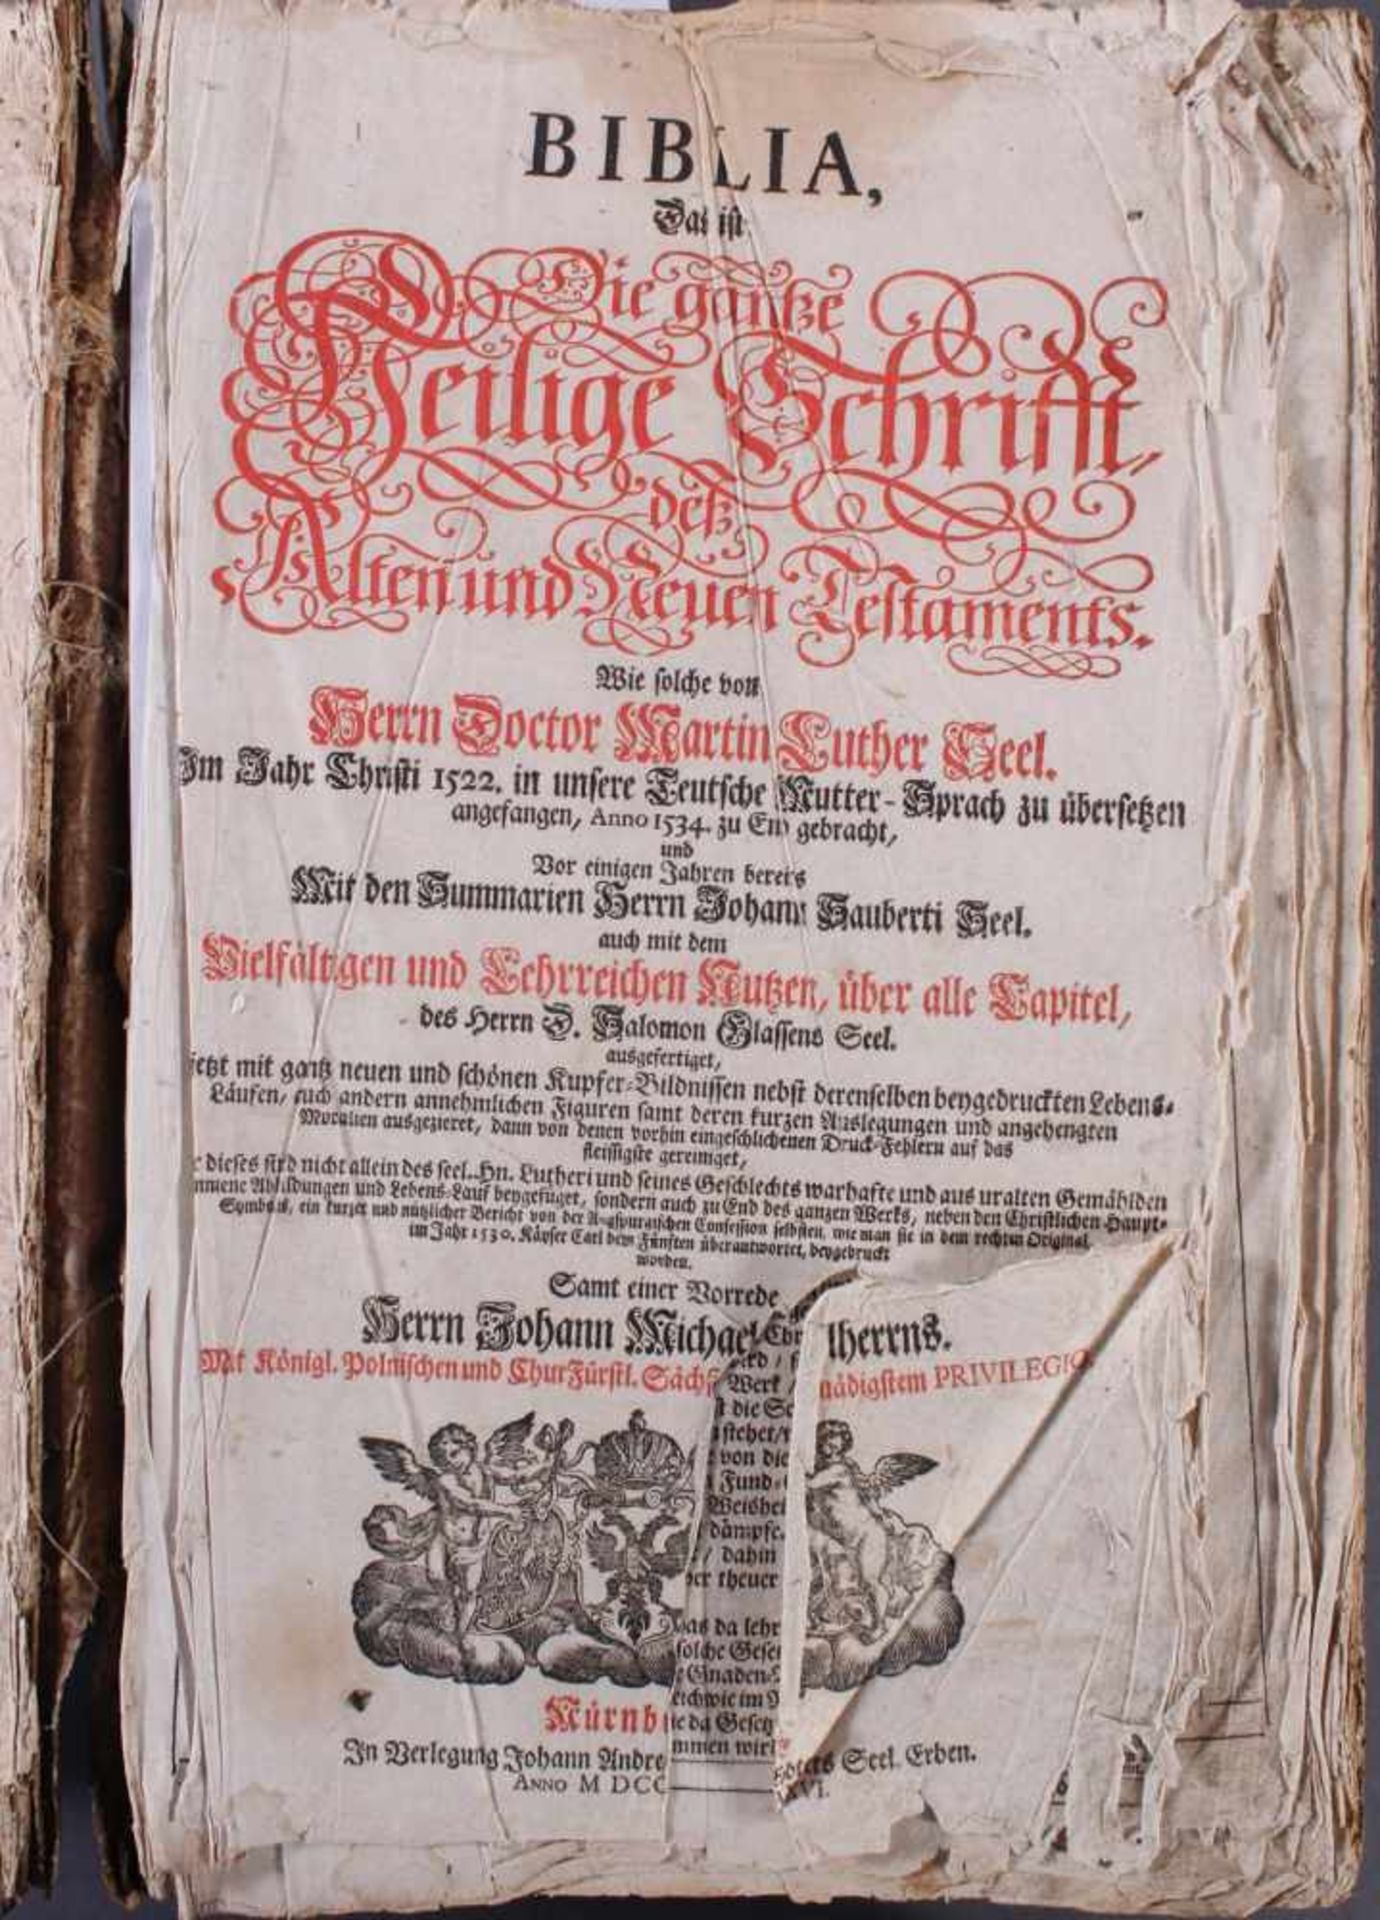 BIBLIA,
Das ist
Die gantze
Heilige Schrifft,
deß
Alten und Neuen Testaments.
Wie solche von
Herrn Doctor Martin Luther Seel.
Im Jahr Christi 1522. in unsere Teutsche Mutter-Sprach zu übersetzen
angefangen, Anno 1534. zu End gebracht,
und
Vor einigen Jahren bereits
Mit den Summarien Herrn Johann Sauberti Seel.
auch mit dem
Vielfältigen und Lehrreichen Nutzen, über alle Capitel,
des Herrn D. Salomon Glassens Seel.
ausgefertiget,
jetzt mit gantz neuen und schönen Kupfer-Bildnissen nebst derenselben beygedruckten Lebens-
Läufen, auch andern annehmlichen Figuren samt deren kurzen Auslegungen und angehengten
Moralien ausgezieret, dann von denen vorhin eingeschlichenen Druck-Fehlern auf das
fleissigste gereiniget,
dieses sind nicht allein des seel. Hn. Lutheri und seines Geschlechts warhafte und aus uralten Gemählden
Abbildungen und Lebens-Lauf beygefüget, sondern auch zu End des ganzen Werks, neben den Christlichen Haupt-
Symbolis, ein kurzer und nützlicher Bericht von der Augspurgischen Confession selbsten, wie man sie in dem rechten Original
im Jahr 1530. Käyser Carl dem Fünften überantwortet, beygedruckt
worden.
Samt einer Vorrede
Herrn Johann Michael lherrns.
Mit Königl. Polnischen und ChurFürstl. Sächs nädigstem PRIVILEGIO.
Werk
st die Sc
stehet/
von die
Fund-
Weishei
dämpfe.
/ dahin
der theuer
was da lehr
solche Gese
Gnaden-
eichwie im
ie da Gesetz
mmen wir
Nürnb
In Verlegung Johann Andre Seel. Erben.
ANNO M DCC XVI.